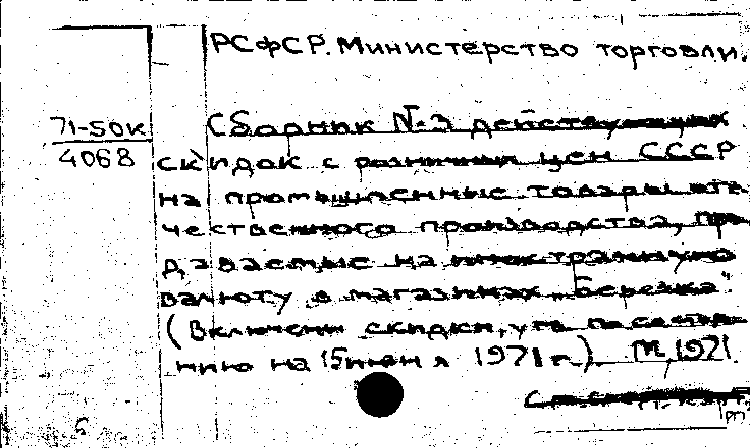 РСФСР. Министерство торговли.
71-50к
4068
Сборник №3 действующих
скидок с розничных цен СССР
на промышленные товары оте-
чественного производства, про-
даваемые на иностранную
валюту в магазинах „Березка".
(Включены скидки, утв. по состоя-
нию на 15 июня 1971 г.). М, 1971.